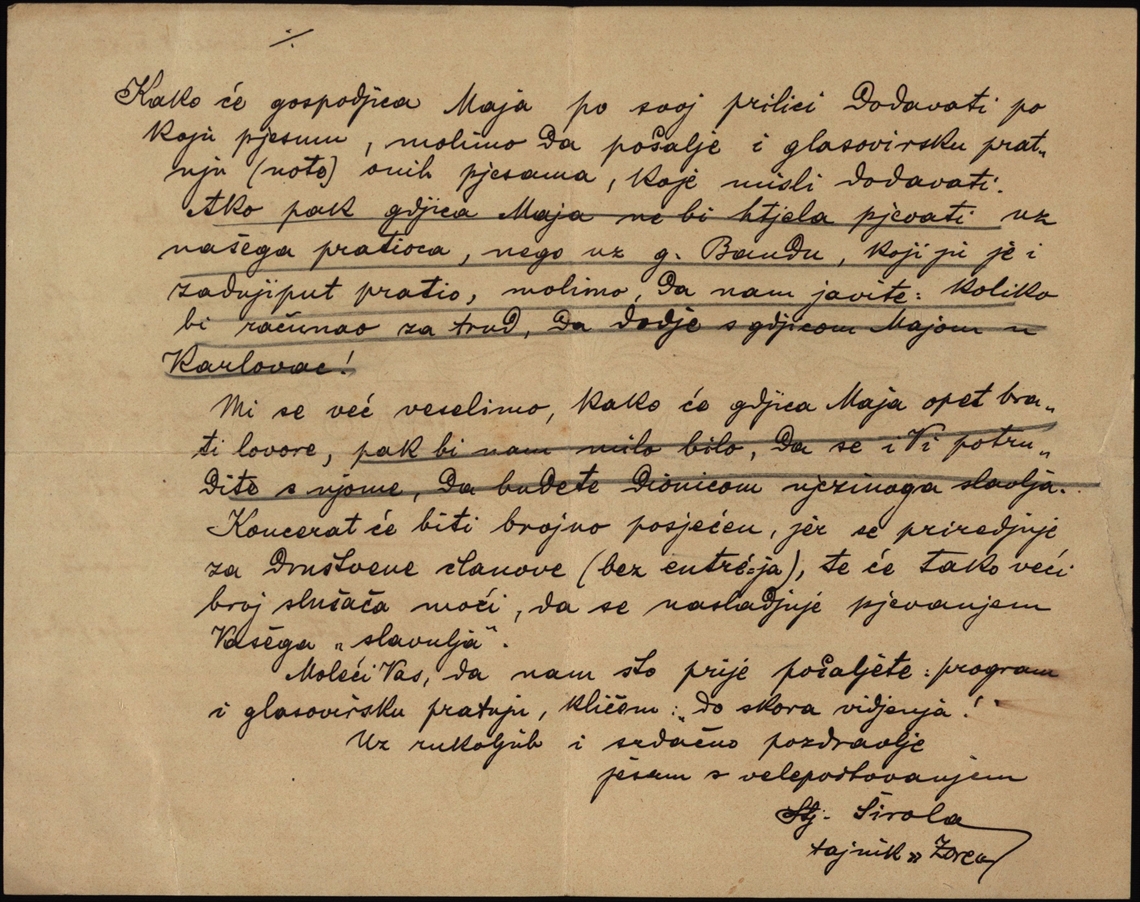 ·/·
Kako će gospodjica Maja po svoj prilici dodavati po
koju pjesmu, molimo da pošalje i glasovirsku prat„
nju (note) onih pjesama, koje misli dodavati.
Ako pak gdjica Maja ne bi htjela pjevati uz
našega pratioca, nego uz g. Bandu, koji ju je i
zadnjiput pratio, molimo, da nam javite: koliko
bi računao za trud, da dodje s gdjicom Majom u
Karlovac!
Mi se već veselimo, kako će gdjica Maja opet bra„
ti lovore, pak bi nam milo bilo, da se i Vi potru„
dite s njome, da budete dionicom njezinoga slavlja.
Koncerat će biti brojno posjećen, jer se priredjuje
za družtvene članove (bez entré-ja), te će tako veći
broj slušača moći, da se nasladjuje pjevanjem
Vašega „slavulja".
Moleći Vas, da nam što prije pošaljete: program
i glasovirsku pratnju, kličem: „do skora vidjenja!"
Uz rukoljub i srdačno pozdravlje
jesam s velepoštovanjem
Stj. Širola
tajnik „Zore"